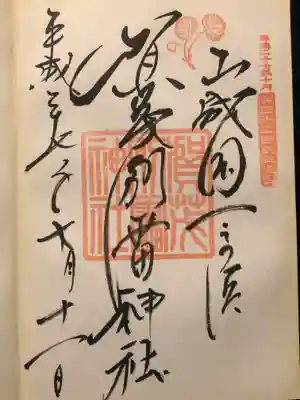 平成二十七年十月
山城国一之宮
賀茂別雷神社
賀茂別雷神社
平成二七年十月十一日